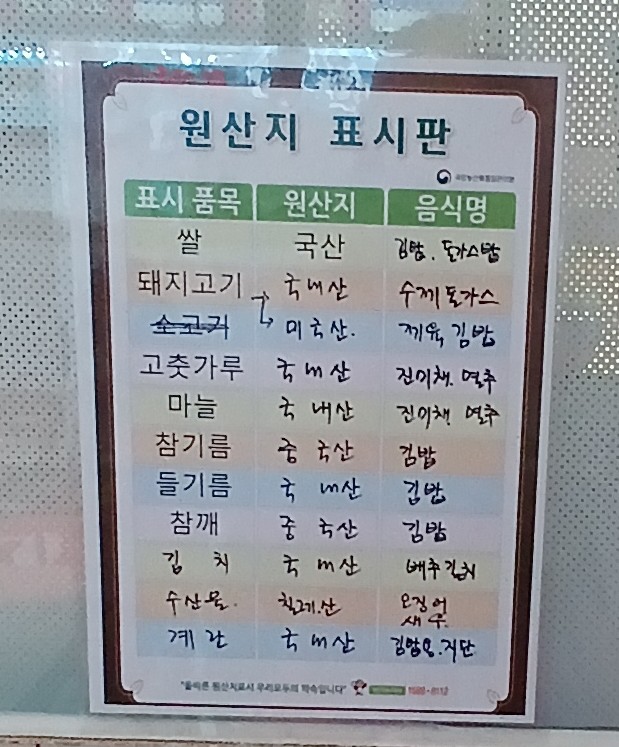 원산지 표시판
국립농산물품질관리원
표시 품목 원산지 음식명
쌀 국산 김밥. 돈가스밥
돼지고기 국내산 수제돈가스
소고기 미국산. 제육김밥
고춧가루 국내산 진미채. 멸추
마늘 국내산 진미채 멸추
참기름 중국산 김밥
들기름 국내산 김밥
참깨 중국산 김밥
김치 국내산 배추김치
수산물. 칠레.산 오징어
새우.
계란 국내산 김밥용.지단
"올바른 원산지표시 우리모두의 약속입니다" 1588-8112